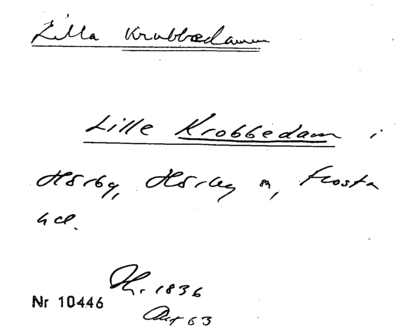 Lilla Krabbedammen
Lille Krobbedam i
Hörby, Hörby sn, Frosta
hd.
Nr 10446
1836
63